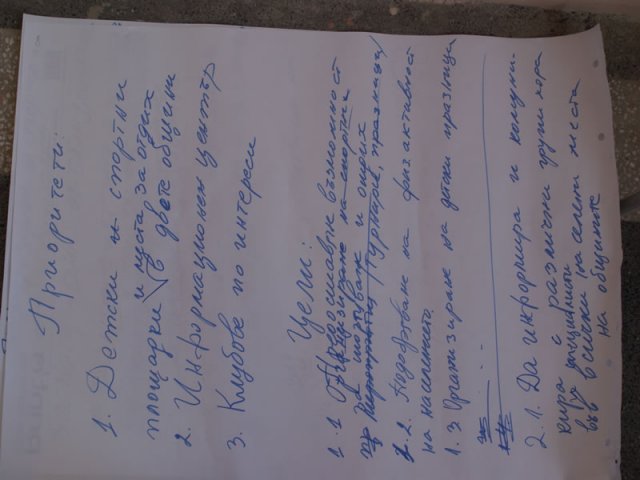 Приоритети:
1. Детски и спортни
площадки и места за отдих
в двете общини
2. Информационен център
3. Клубове по интереси
Цели:
1.1 Предоставяне възможност
за спортуване и отдих
турнири, празници
1.2. Подобряване на физ. активност
на населението
1.3 Организиране на детски празници
2.1. Да информира и комуни-
кира с различни групи хора
във всички населени места
на общините